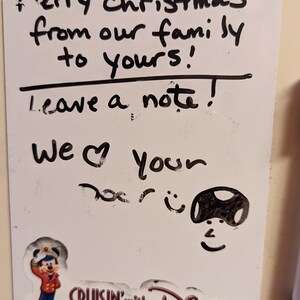 Merry Christmas
from our family
to yours!
Leave a note!
We ♡ your
Door
CRUISIN'